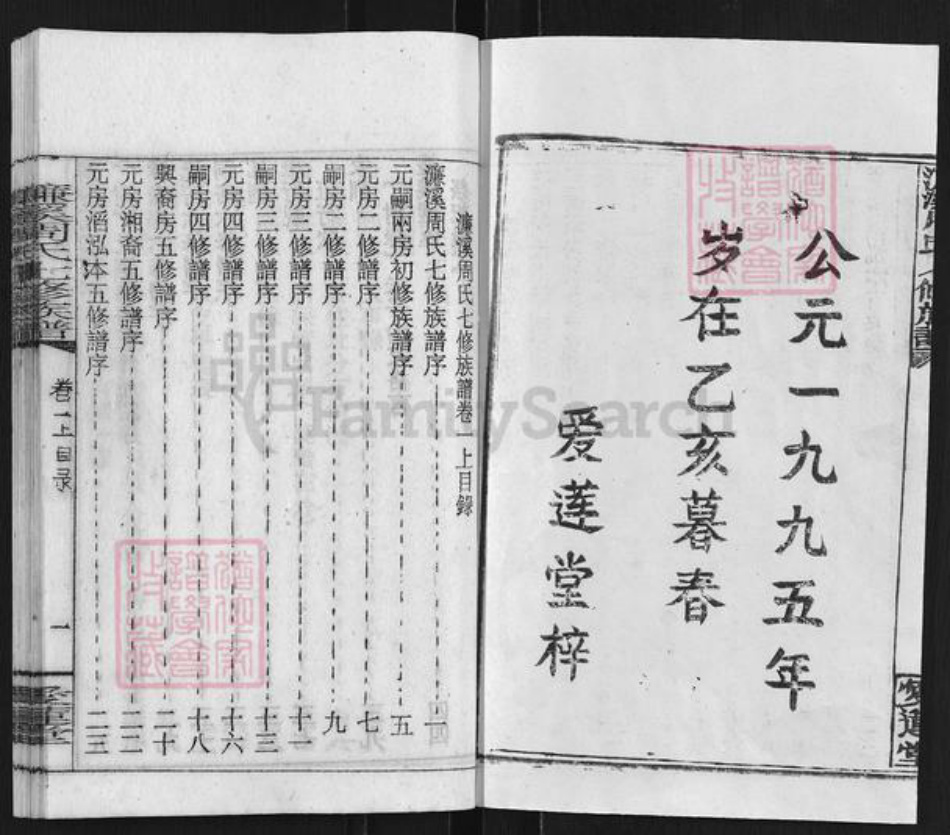 公元一九九五年
岁在乙亥暮春
爱莲堂梓
濂溪周氏七修族譜卷一上目錄
濂溪周氏七修族譜序 一
元嗣兩房初修族譜序 五
元房二修譜序 七
嗣房二修譜序 九
元房三修譜序 十一
嗣房三修譜序 十三
元房四修譜序 十六
嗣房四修譜序 十八
興裔房五修譜序 二十
元房湘裔五修譜序 二二
元房滔泓本五修譜序 二三
卷一上目录
一
FamilySearch
譜學會
收藏